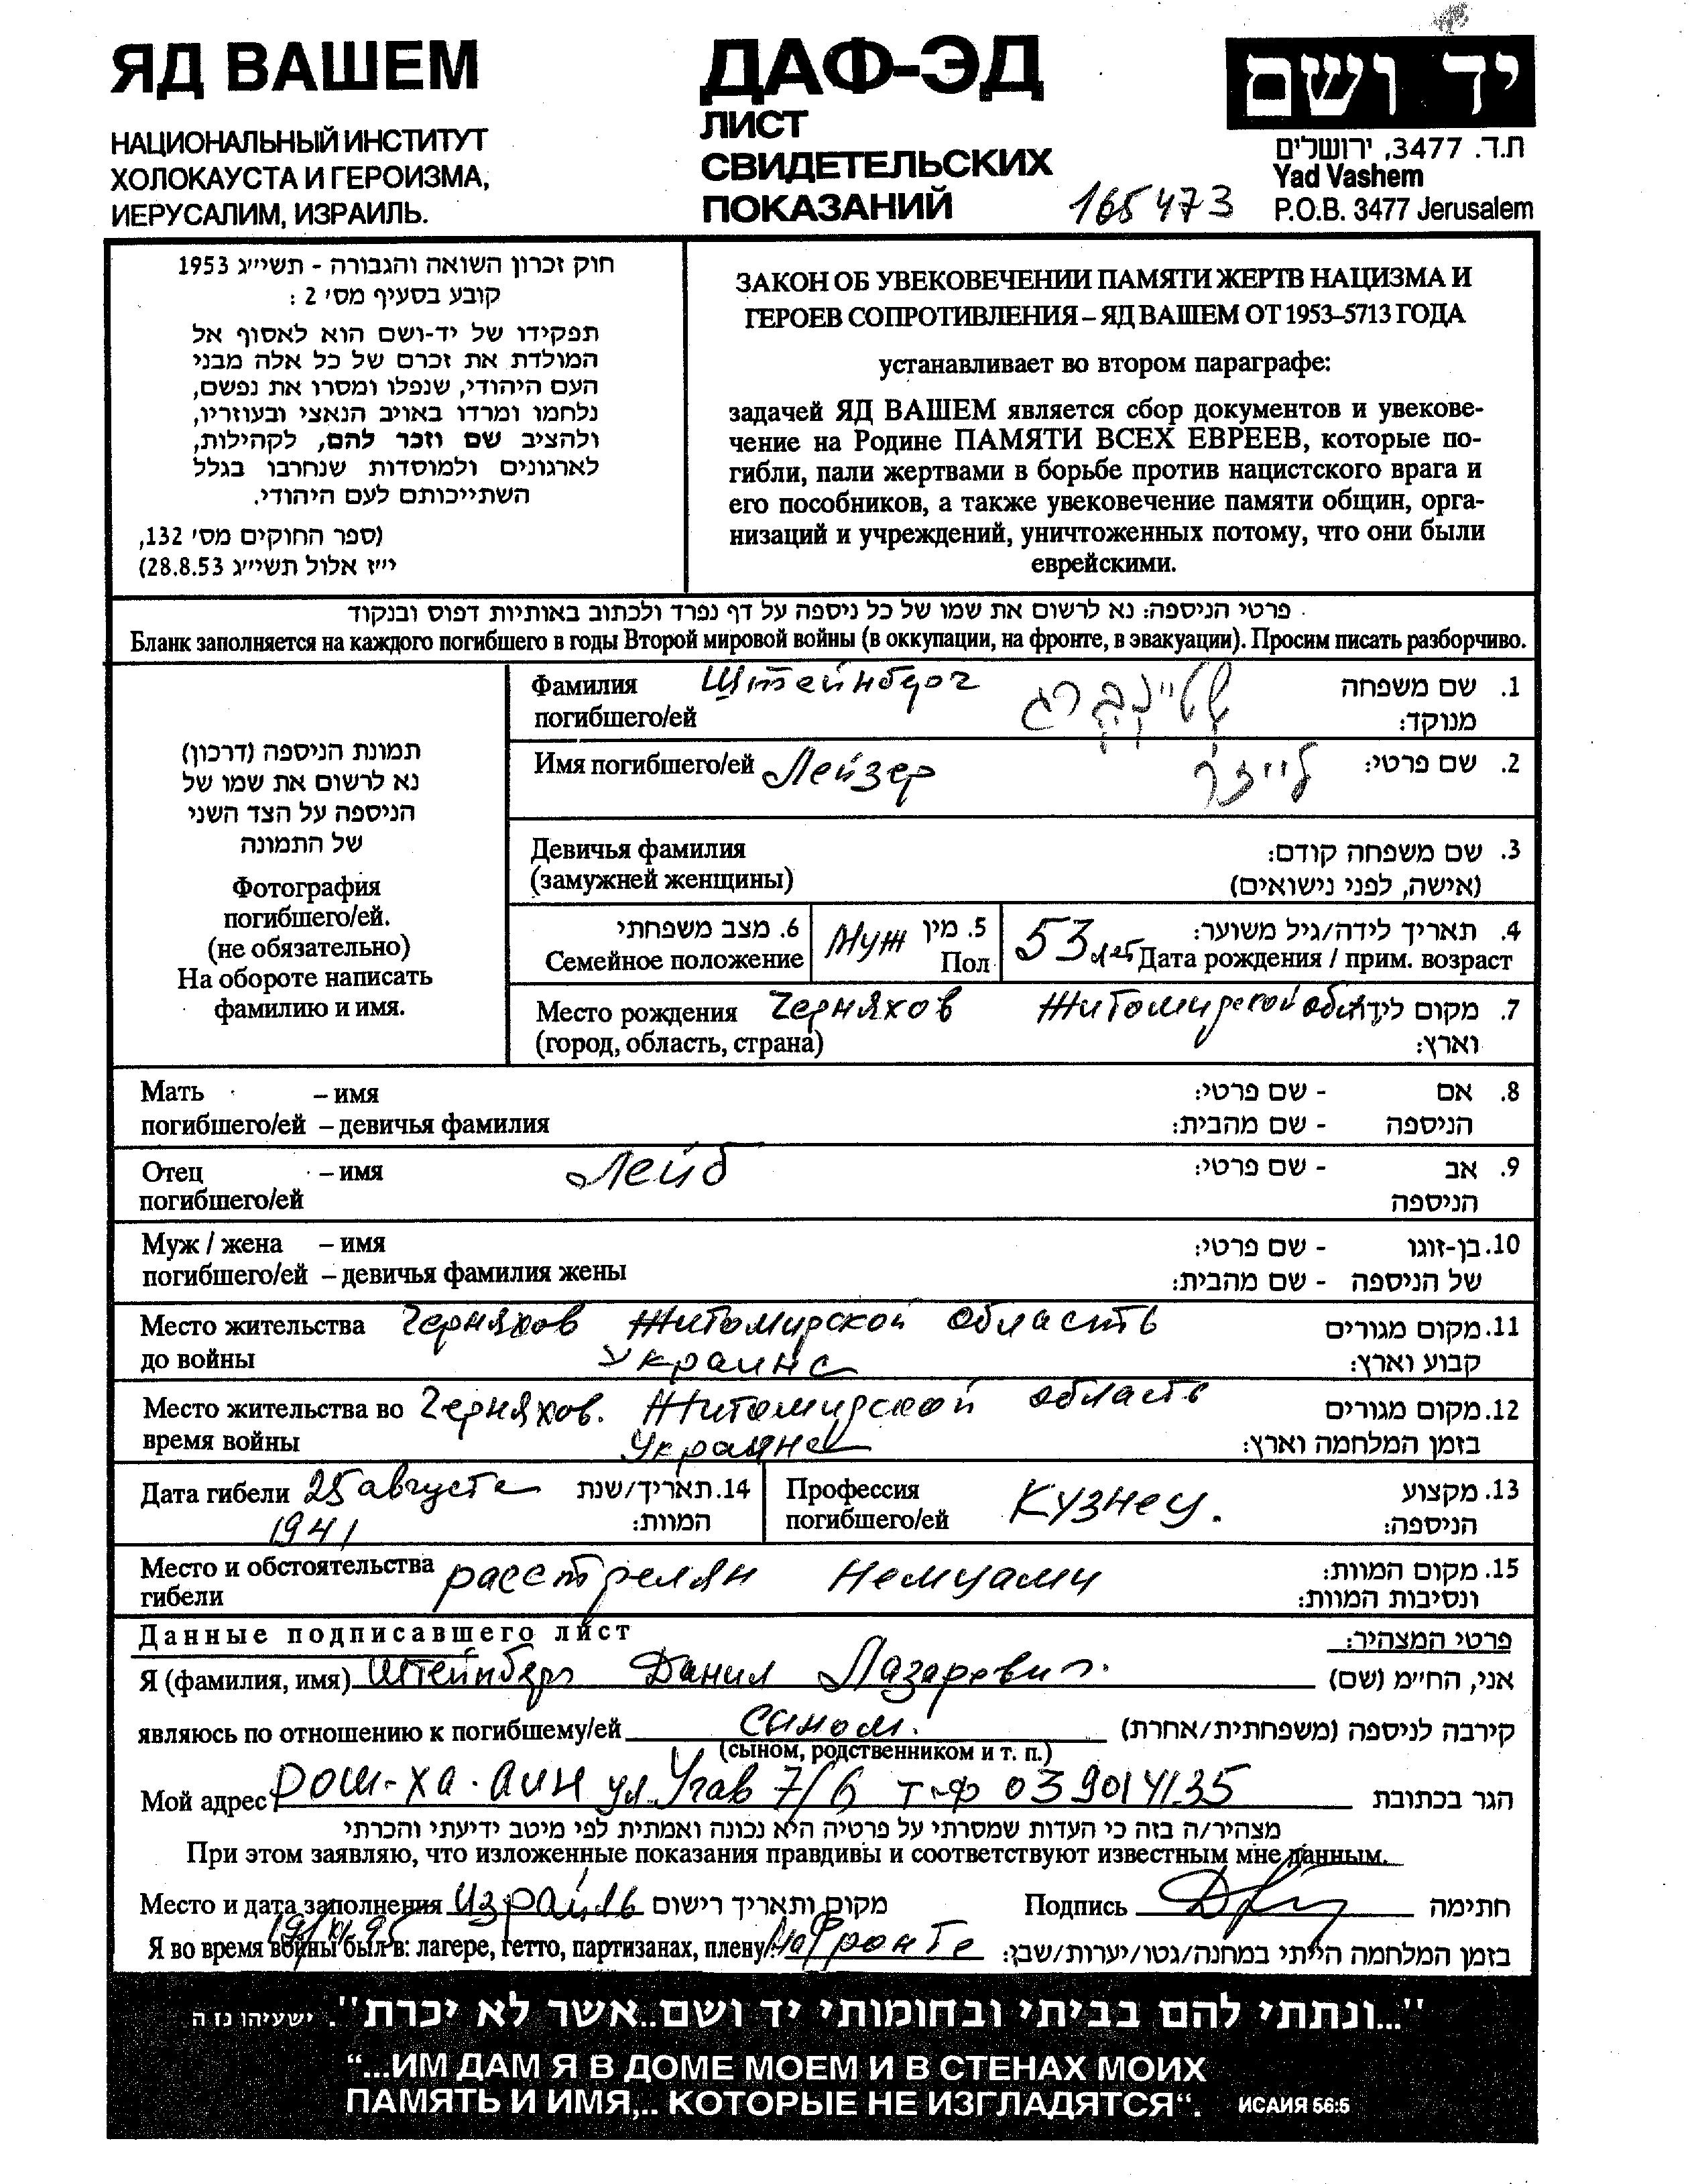 ЯД ВАШЕМ
НАЦИОНАЛЬНЫЙ ИНСТИТУТ
ХОЛОКАУСТА И ГЕРОИЗМА,
ИЕРУСАЛИМ, ИЗРАИЛЬ.
ДАФ-ЭД
ЛИСТ
СВИДЕТЕЛЬСКИХ
ПОКАЗАНИЙ
165473
יד ושם
ת.ד. 3477, ירושלים
Yad Vashem
P.O.B. 3477 Jerusalem
חוק זכרון השואה והגבורה - תשי״ג 1953
קובע בסעיף מס׳ 2 :
תפקידו של יד-ושם הוא לאסוף אל
המולדת את זכרם של כל אלה מבני
העם היהודי, שנפלו ומסרו את נפשם,
נלחמו ומרדו באויב הנאצי ובעוזריו,
ולהציב שם וזכר להם, לקהילות,
לארגונים ולמוסדות שנחרבו בגלל
השתייכותם לעם היהודי.
(ספר החוקים מס׳ 132,
י״ז אלול תשי״ג 28.8.53)
ЗАКОН ОБ УВЕКОВЕЧЕНИИ ПАМЯТИ ЖЕРТВ НАЦИЗМА И
ГЕРОЕВ СОПРОТИВЛЕНИЯ – ЯД ВАШЕМ ОТ 1953–5713 ГОДА
устанавливает во втором параграфе:
задачей ЯД ВАШЕМ является сбор документов и увекове-
чение на Родине ПАМЯТИ ВСЕХ ЕВРЕЕВ, которые по-
гибли, пали жертвами в борьбе против нацистского врага и
его пособников, а также увековечение памяти общин, орга-
низаций и учреждений, уничтоженных потому, что они были
еврейскими.
פרטי הניספה: נא לרשום את שמו של כל ניספה על דף נפרד ולכתוב באותיות דפוס ובנקוד
Бланк заполняется на каждого погибшего в годы Второй мировой войны (в оккупации, на фронте, в эвакуации). Просим писать разборчиво.
תמונת הניספה (דרכון)
נא לרשום את שמו של
הניספה על הצד השני
של התמונה
Фотография
погибшего/ей.
(не обязательно)
На обороте написать
фамилию и имя.
Фамилия Штейнберг שטיינברג 1. שם משפחה
погибшего/ей מנוקד:
Имя погибшего/ей Лейзер לייזר 2. שם פרטי:
Девичья фамилия 3. שם משפחה קודם:
(замужней женщины) (אישה, לפני נישואים)
6. מצב משפחתי
Семейное положение
Муж 5. מין
Пол
53 лет 4. תאריך לידה/גיל משוער:
Дата рождения / прим. возраст
Место рождения Черняхов Житомирской обл. 7. מקום לידה
(город, область, страна) וארץ:
Мать – имя 8. אם - שם פרטי:
погибшего/ей – девичья фамилия הניספה - שם מהבית:
Отец – имя Лейб 9. אב - שם פרטי:
погибшего/ей הניספה
Муж / жена – имя 10. בן-זוגו - שם פרטי:
погибшего/ей – девичья фамилия жены של הניספה - שם מהבית:
Место жительства Черняхов Житомирской область 11. מקום מגורים
до войны Украина קבוע וארץ:
Место жительства во Черняхов. Житомирской область 12. מקום מגורים
время войны Украина בזמן המלחמה וארץ:
Дата гибели 25 августа 14. תאריך/שנת
1941 המוות:
Профессия Кузнец. 13. מקצוע
погибшего/ей הניספה:
Место и обстоятельства расстрелян Немцами 15. מקום המוות:
гибели ונסיבות המוות:
Данные подписавшего лист פרטי המצהיר:
Я (фамилия, имя) Штейнберг Данил Лазаревич. אני, החי״מ (שם)
являюсь по отношению к погибшему/ей сыном. קירבה לניספה (משפחתית/אחרת)
(сыном, родственником и т. п.)
Мой адрес Рош-ха-Аин ул. Угав 7/6 т-ф 03 9014135 הגר בכתובת
מצהיר/ה בזה כי העדות שמסרתי על פרטיה היא נכונה ואמתית לפי מיטב ידיעתי והכרתי
При этом заявляю, что изложенные показания правдивы и соответствуют известным мне данным.
Место и дата заполнения Израиль מקום ותאריך רישום Подпись חתימה
19/XI 95
Я во время войны был в: лагере, гетто, партизанах, плену/: На Фронте בזמן המלחמה הייתי במחנה/גטו/יערות/שבי:
"...ונתתי להם בביתי ובחומותי יד ושם..אשר לא יכרת". ישעיהו נו ה
“...ИМ ДАМ Я В ДОМЕ МОЕМ И В СТЕНАХ МОИХ
ПАМЯТЬ И ИМЯ,.. КОТОРЫЕ НЕ ИЗГЛАДЯТСЯ“. ИСАИЯ 56:5